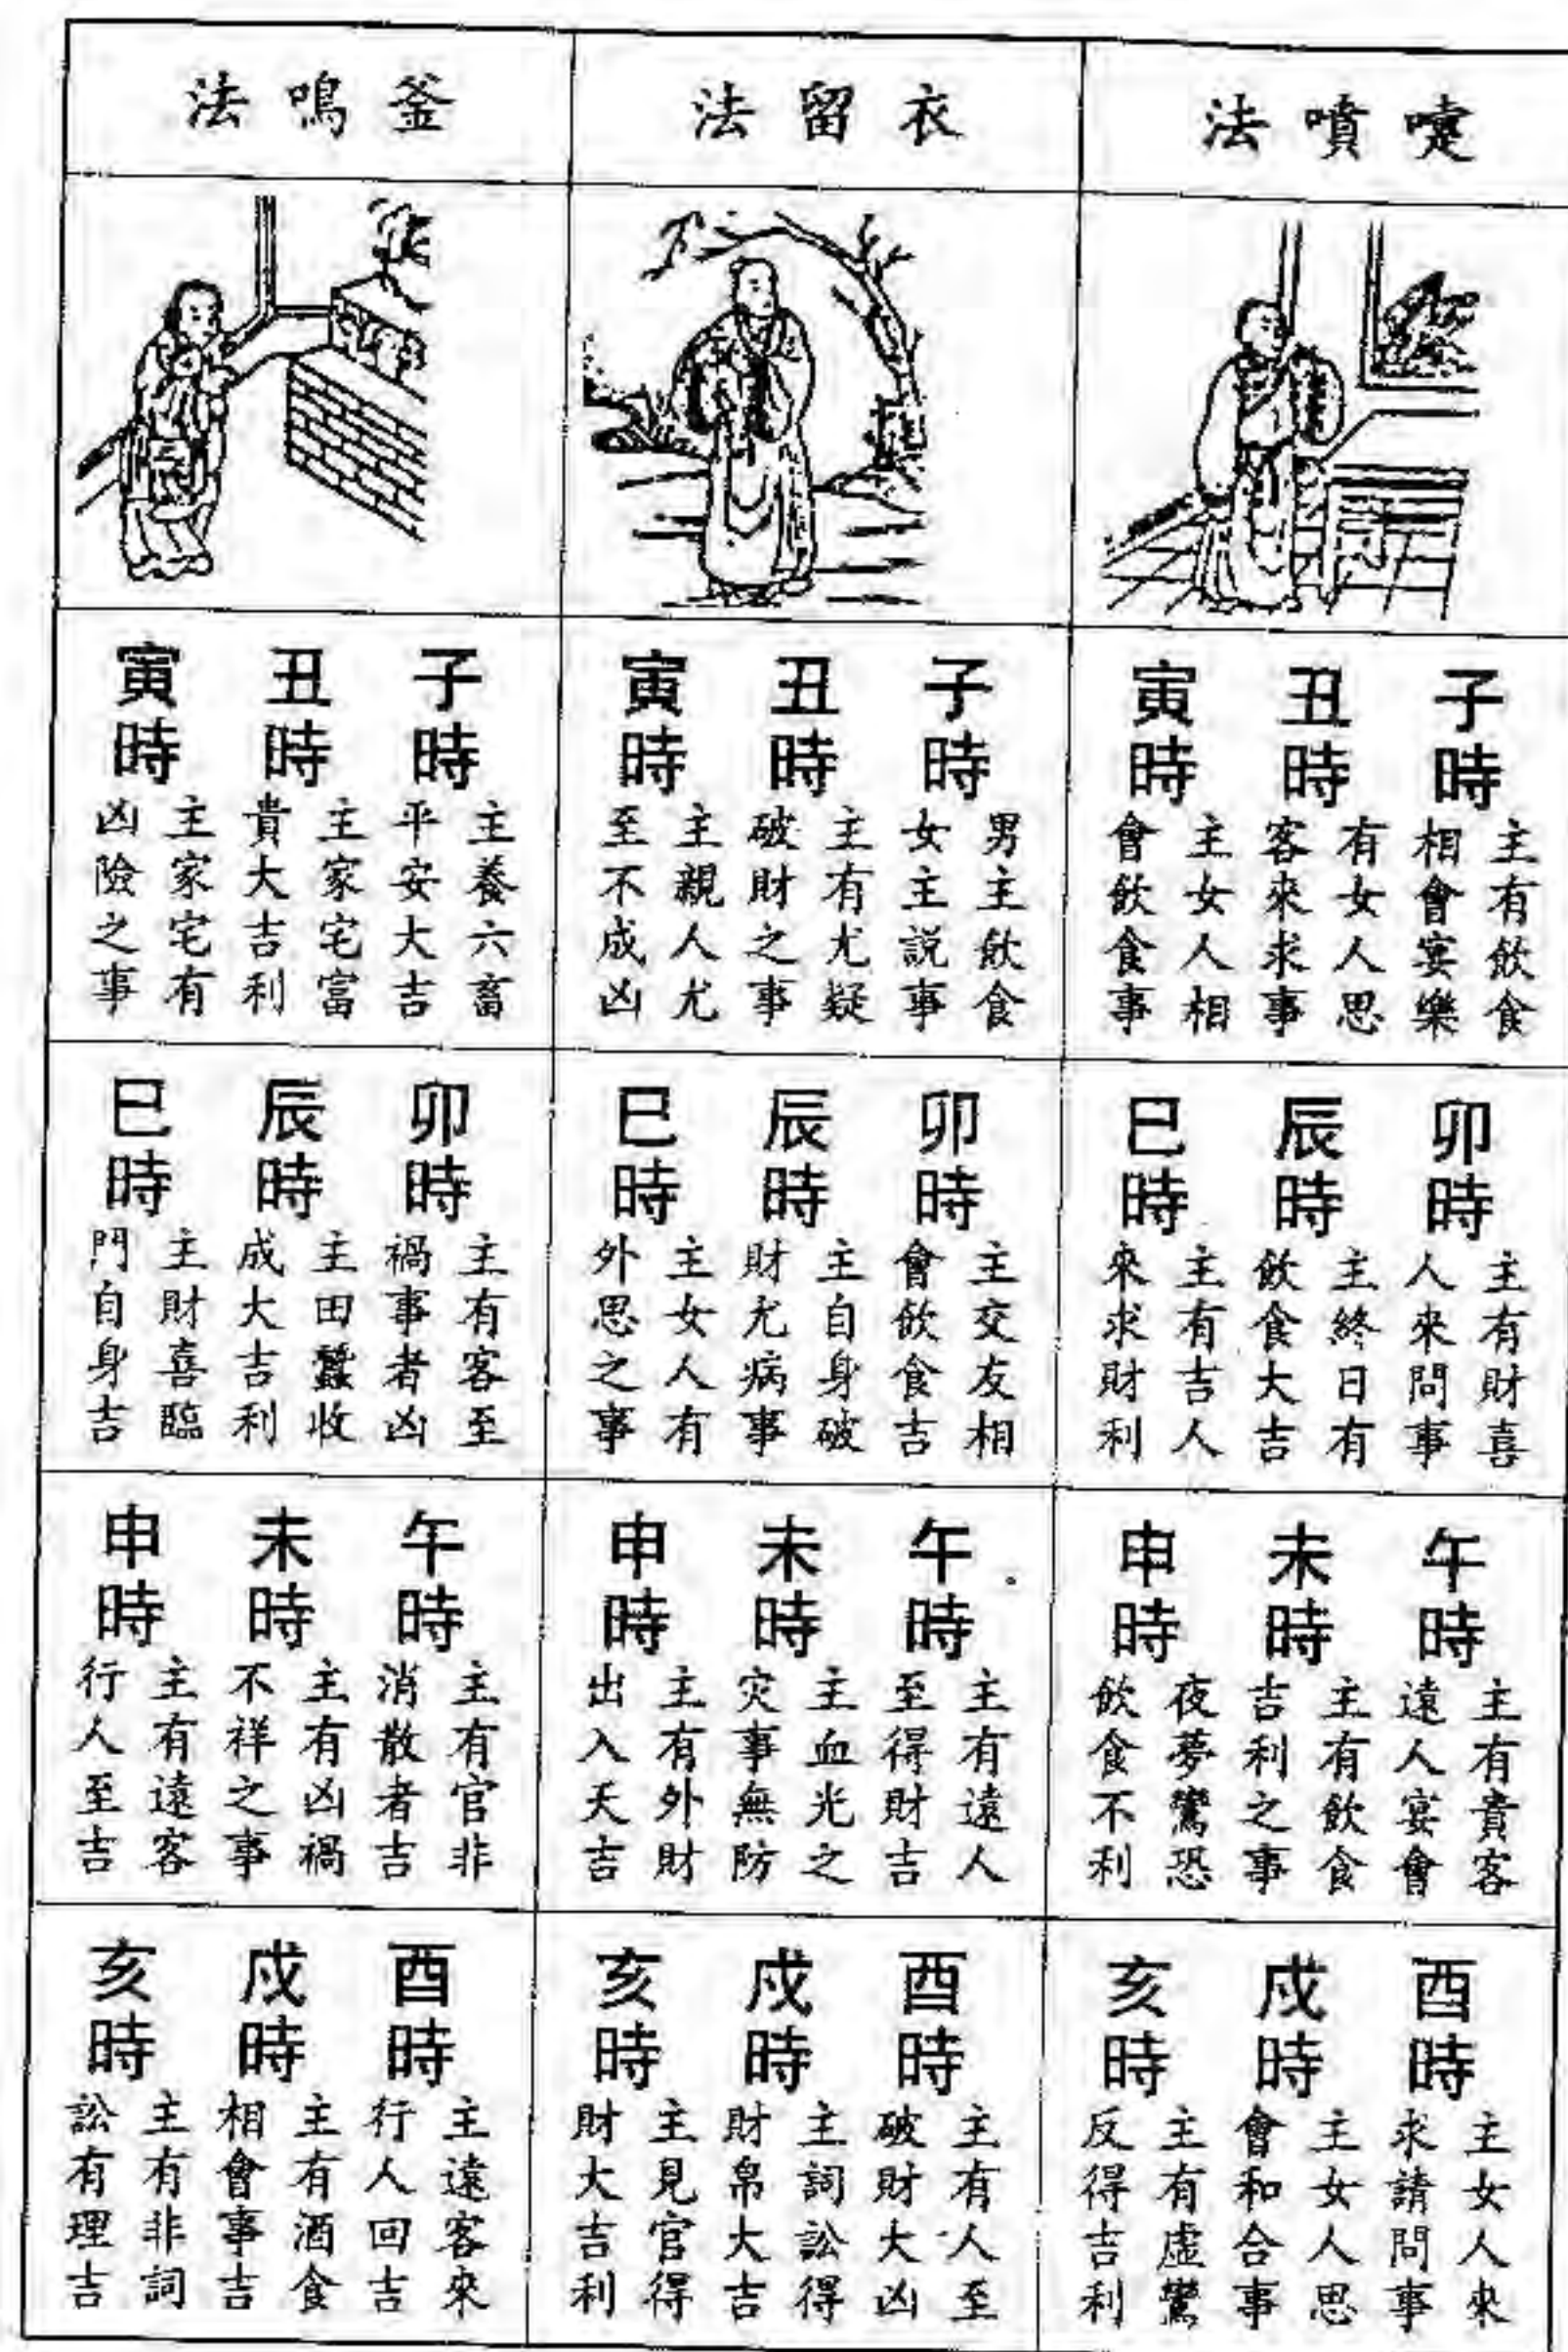 嚏噴法
子時
主有飲食
相會宴樂
丑時
有女人思
客來求事
寅時
主女人相
會飲食事
卯時
主有財喜
人來問事
辰時
主終日有
飲食大吉
巳時
主有吉人
來求財利
午時
主有貴客
遠人宴會
未時
主有飲食
吉利之事
申時
夜夢驚恐
飲食不利
酉時
主女人來
求請問事
戌時
主女人思
會和合事
亥時
主有虛驚
反得吉利
衣留法
子時
男主飲食
女主說事
丑時
主有尤疑
破財之事
寅時
主親人尤
至不成凶
卯時
主交友相
會飲食吉
辰時
主自身破
財尤病事
巳時
主女人有
外思之事
午時
主有遠人
至得財吉
未時
主血光之
灾事無防
申時
主有外財
出入天吉
酉時
主有人至
破財大凶
戌時
主詞訟得
財帛大吉
亥時
主見官得
財大吉利
釜鳴法
子時
主養六畜
平安大吉
丑時
主家宅富
貴大吉利
寅時
主家宅有
凶險之事
卯時
主有客至
禍事者凶
辰時
主田蠶收
成大吉利
巳時
主財喜臨
門自身吉
午時
主有官非
消散者吉
未時
主有凶禍
不祥之事
申時
主有遠客
行人至吉
酉時
主遠客來
行人回吉
戌時
主有酒食
相會事吉
亥時
主有非詞
訟有理吉